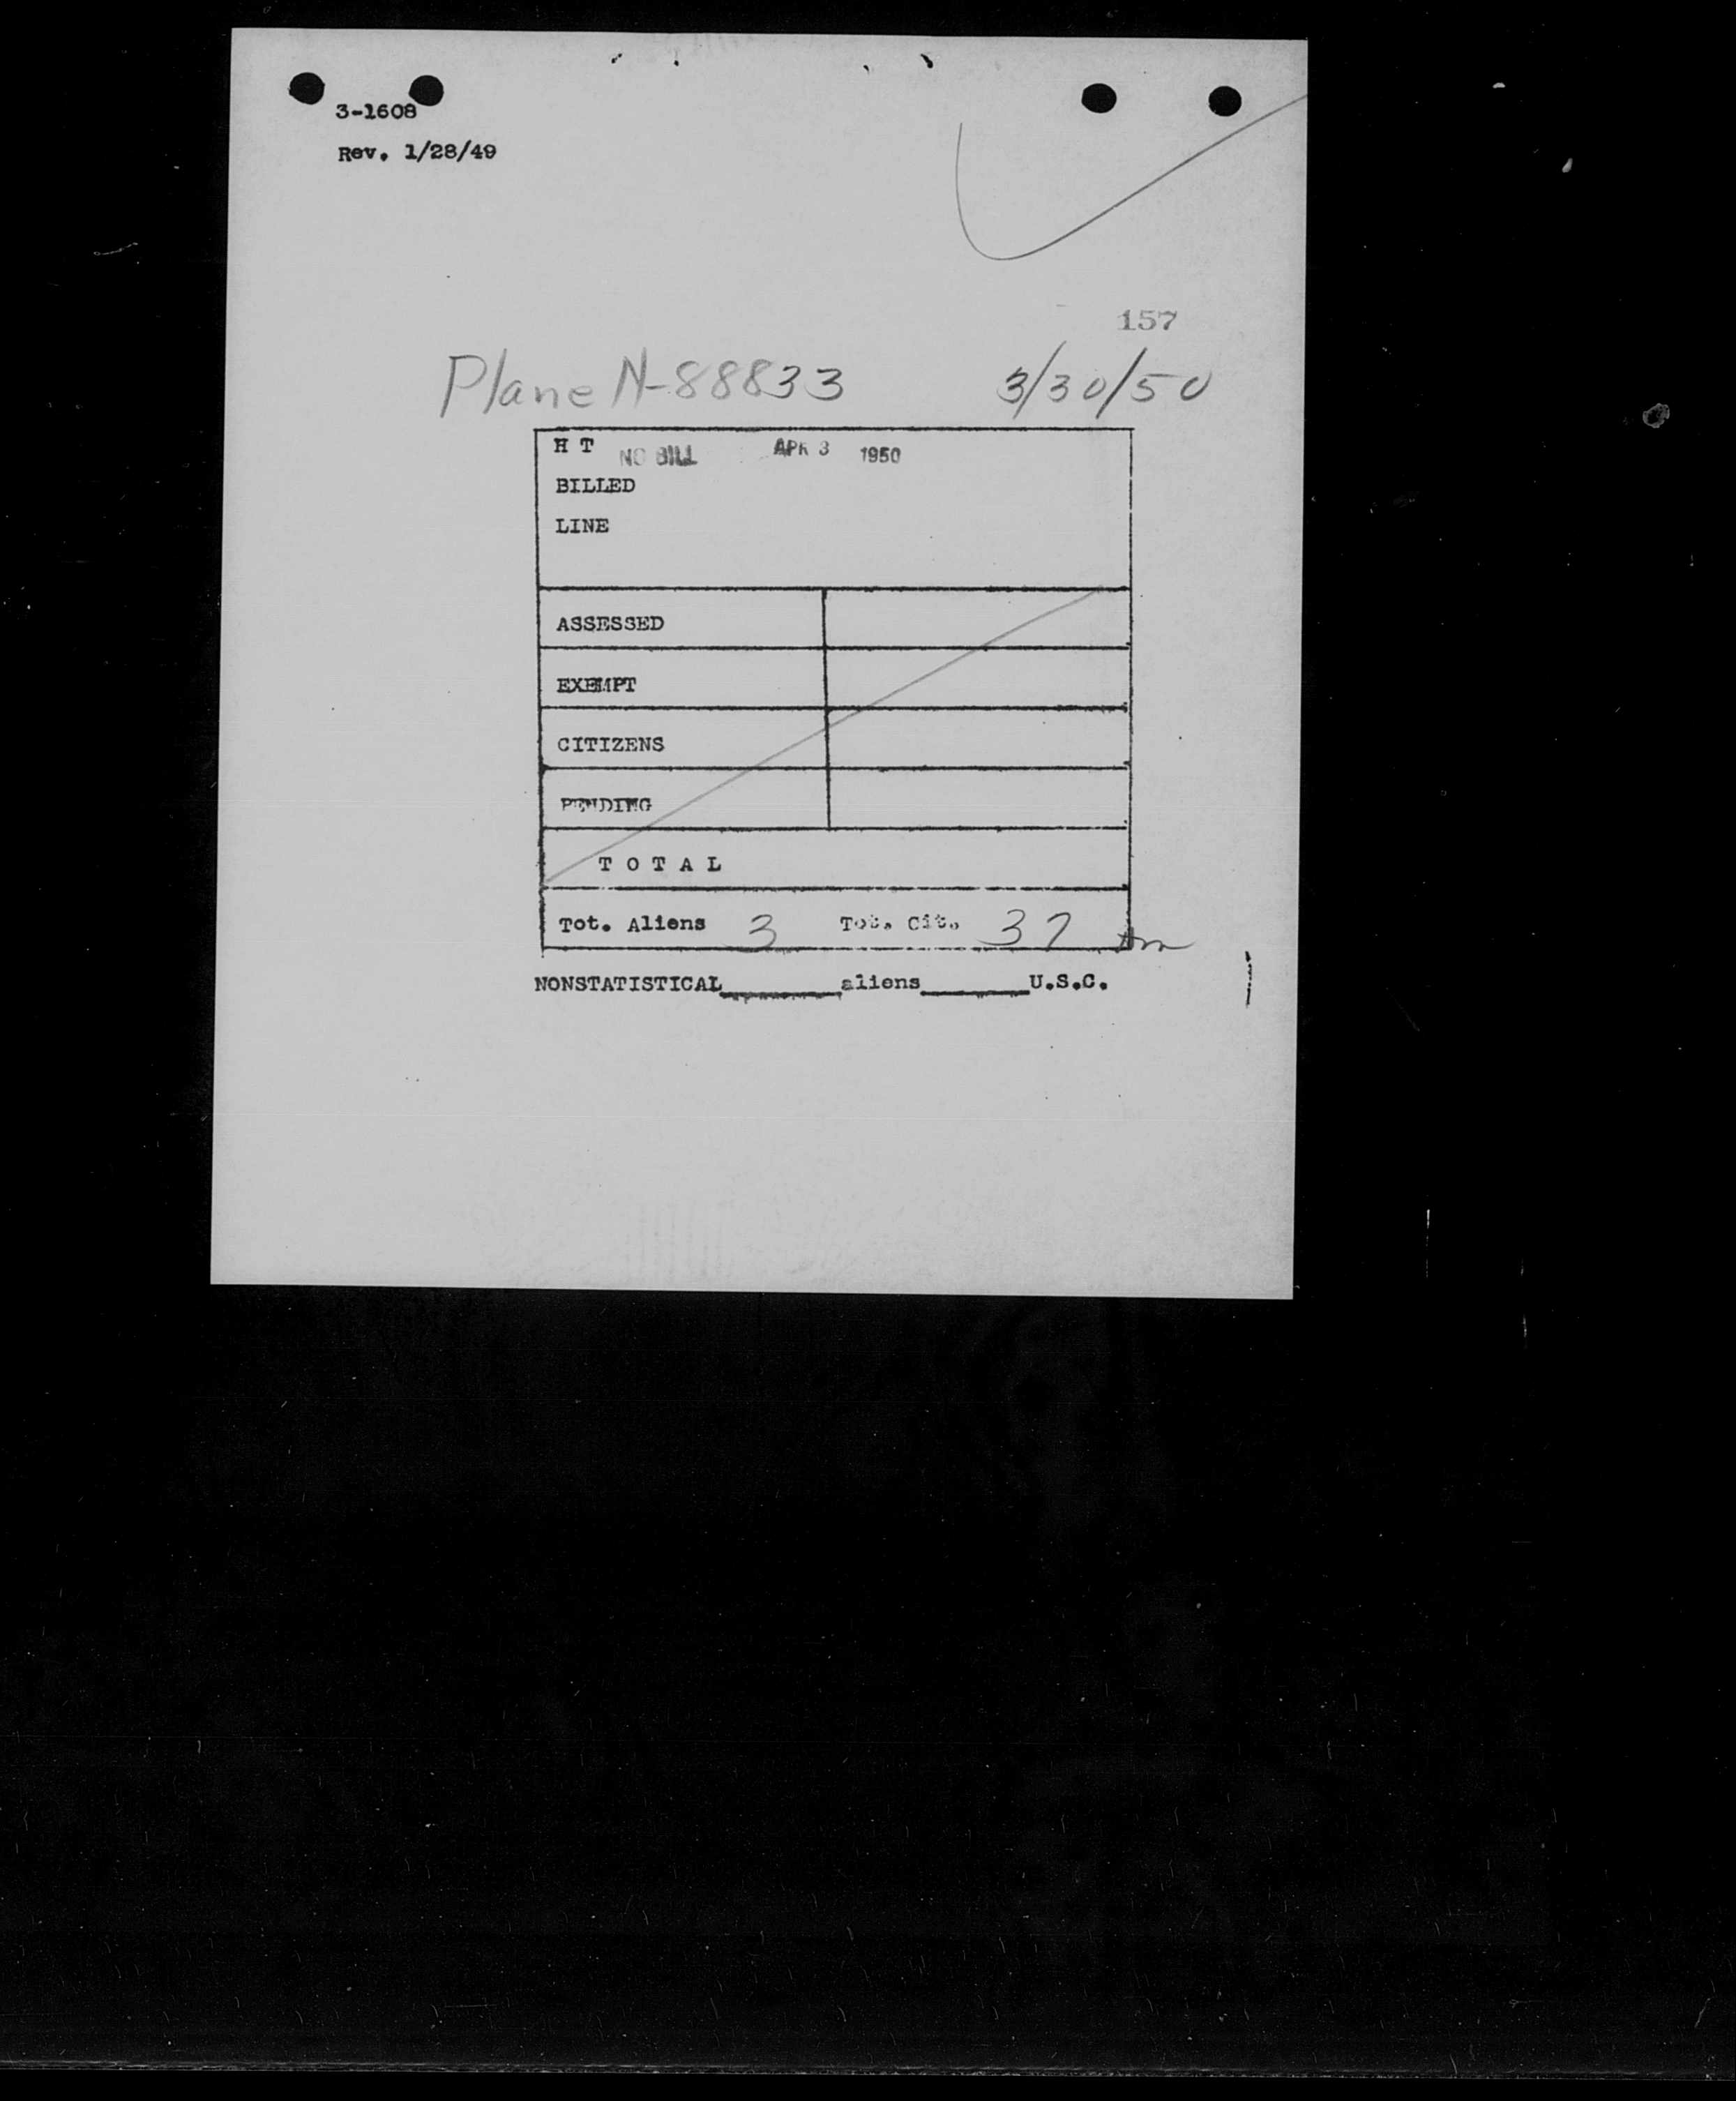 3-1608
Rev. 1/28/49
157
Plane N-88833 3/30/50
H T NO BILL APR 3 1950
BILLED
LINE
ASSESSED
EXEMPT
CITIZENS
PENDING
T O T A L
Tot. Aliens 3 Tot. Cit. 37
NONSTATISTICAL________aliens_______U.S.C.